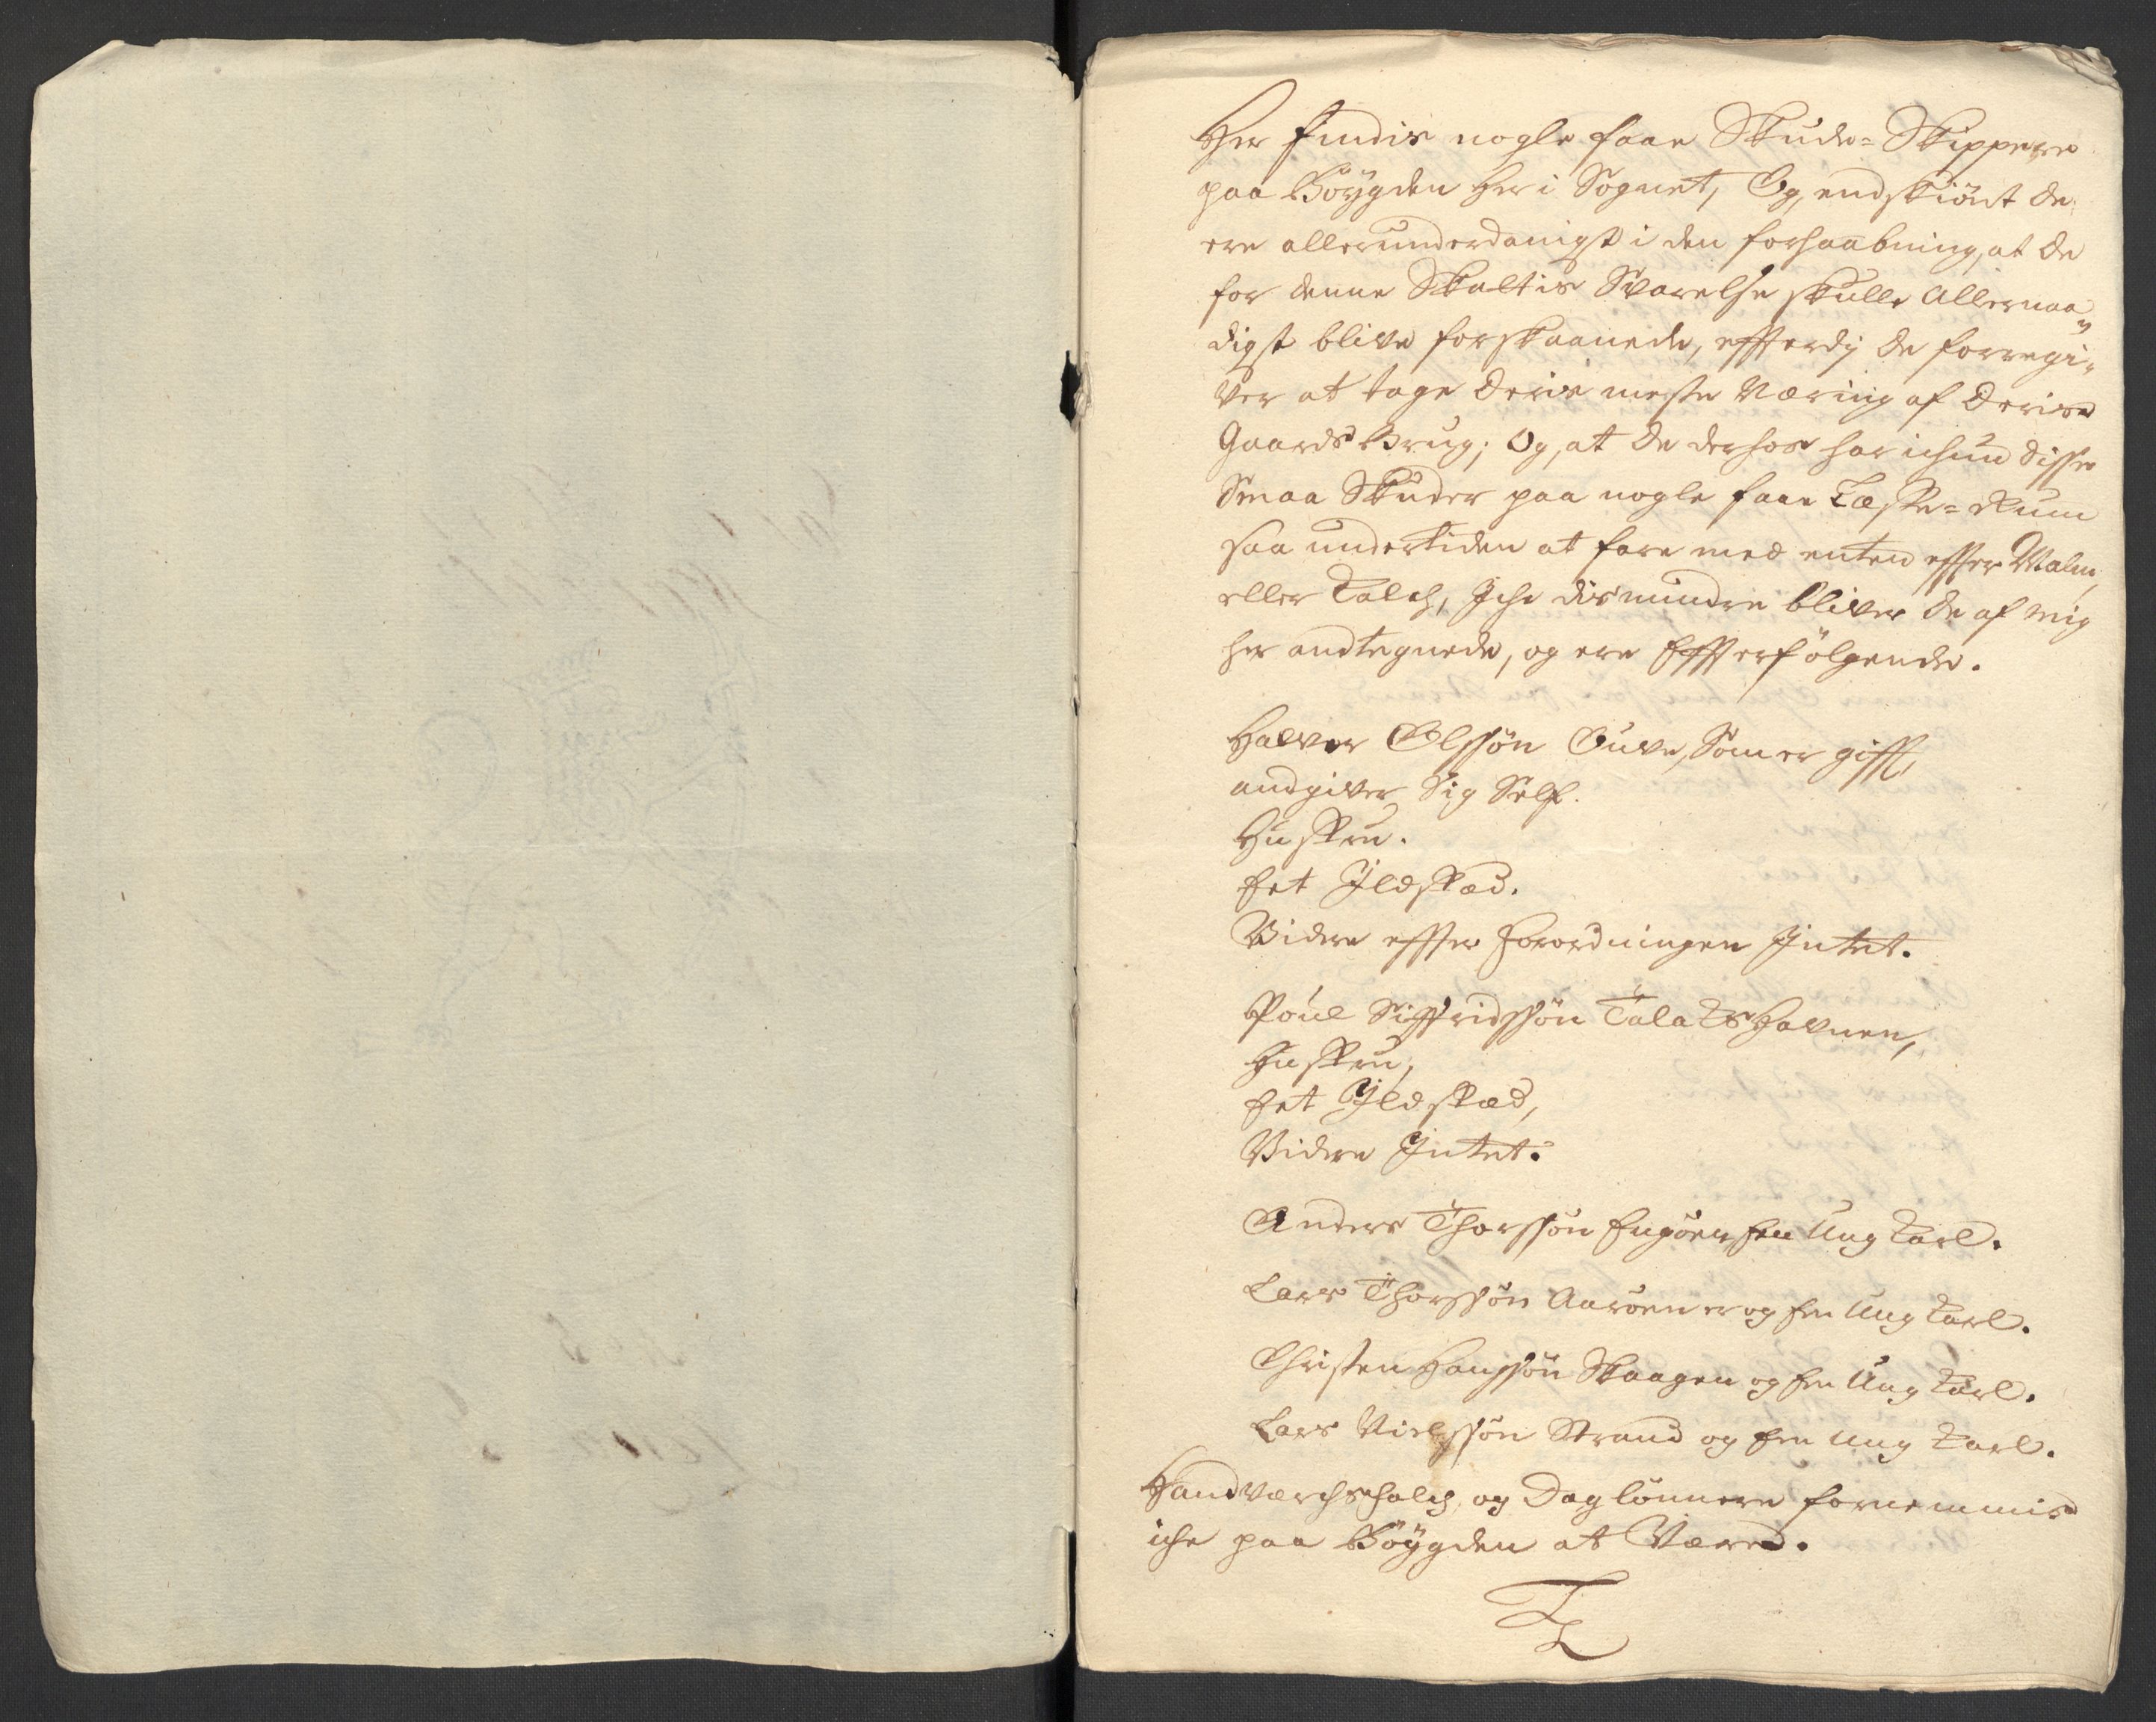 Her findis nogle faae Skude-Skippere
paa Böygden her i Sognet, Og, endskiönt de
ere allerunderdanigst i den forhaabning, at de
for denne Skattis Svarelse skulle Allernaa
digst blive forskaanede, effterdj de forregi-
ver at tage deris meste Næring af deris
Gaards Brug; Og, at de derhos har ichun disse
Smaa Skuder paa nogle faae Læste-Rum
saa undertiden at fare med enten effter Malm,
eller Kalch, Iche dismindre bliver de af mig
her andtegnede, og ere Effterfölgende.
Halvor Olssön Ouve, Som er gifft,
andgiver Sig Self.
Hustru.
Eet Ildstæd.
Videre effter Forordningen Intet.
Poul Siffridssön Havnen,
Hustru,
Eet Ildstæd,
Videre Intet.
Anders Thorssön Engöen Een Ung Karl.
Lars Thorssön Aaröen er og Een Ung Karl.
Christen Hanssön Skaagen og Een Ung Karl.
Lars Nielssön Strand og Een Ung Karl.
Handværchsfolch, og Daglönnere fornemmis
iche paa Böygden at Være.